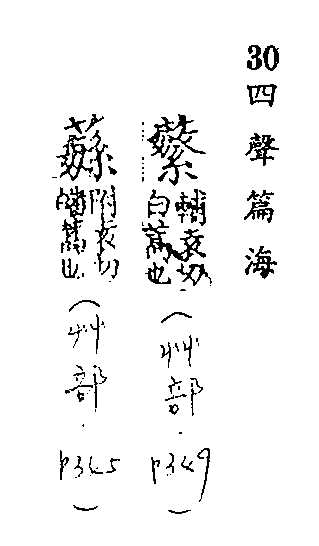 30 四聲篇海
蘩
輔袁切
白蒿也
(艸部.p349)
附袁切
皤蒿也
(艸部.p345)